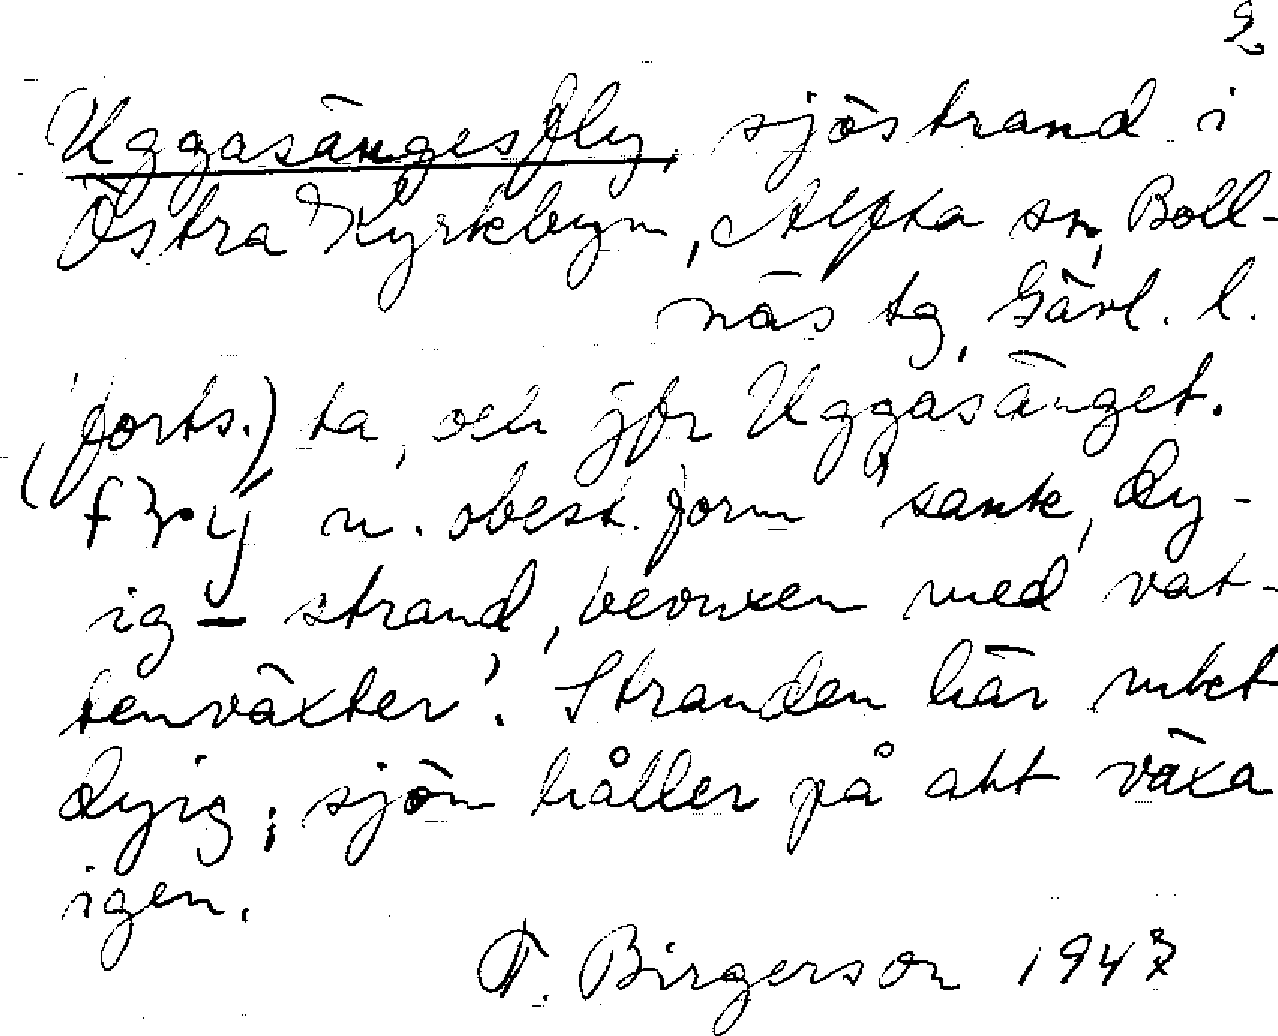 2
Uggasängesfly, sjöstrand i
Östra Kyrkbyn, Alfta sn, Boll-
näs tg, Gävl. l.
(forts.) ta, och jfr Uggasänget.
n. obest. form "sank, dy-
ig – strand, bevuxen med vat-
tenväxter". Stranden här mkt
dyig; sjön håller på att växa
igen.
F. Birgerson 1947